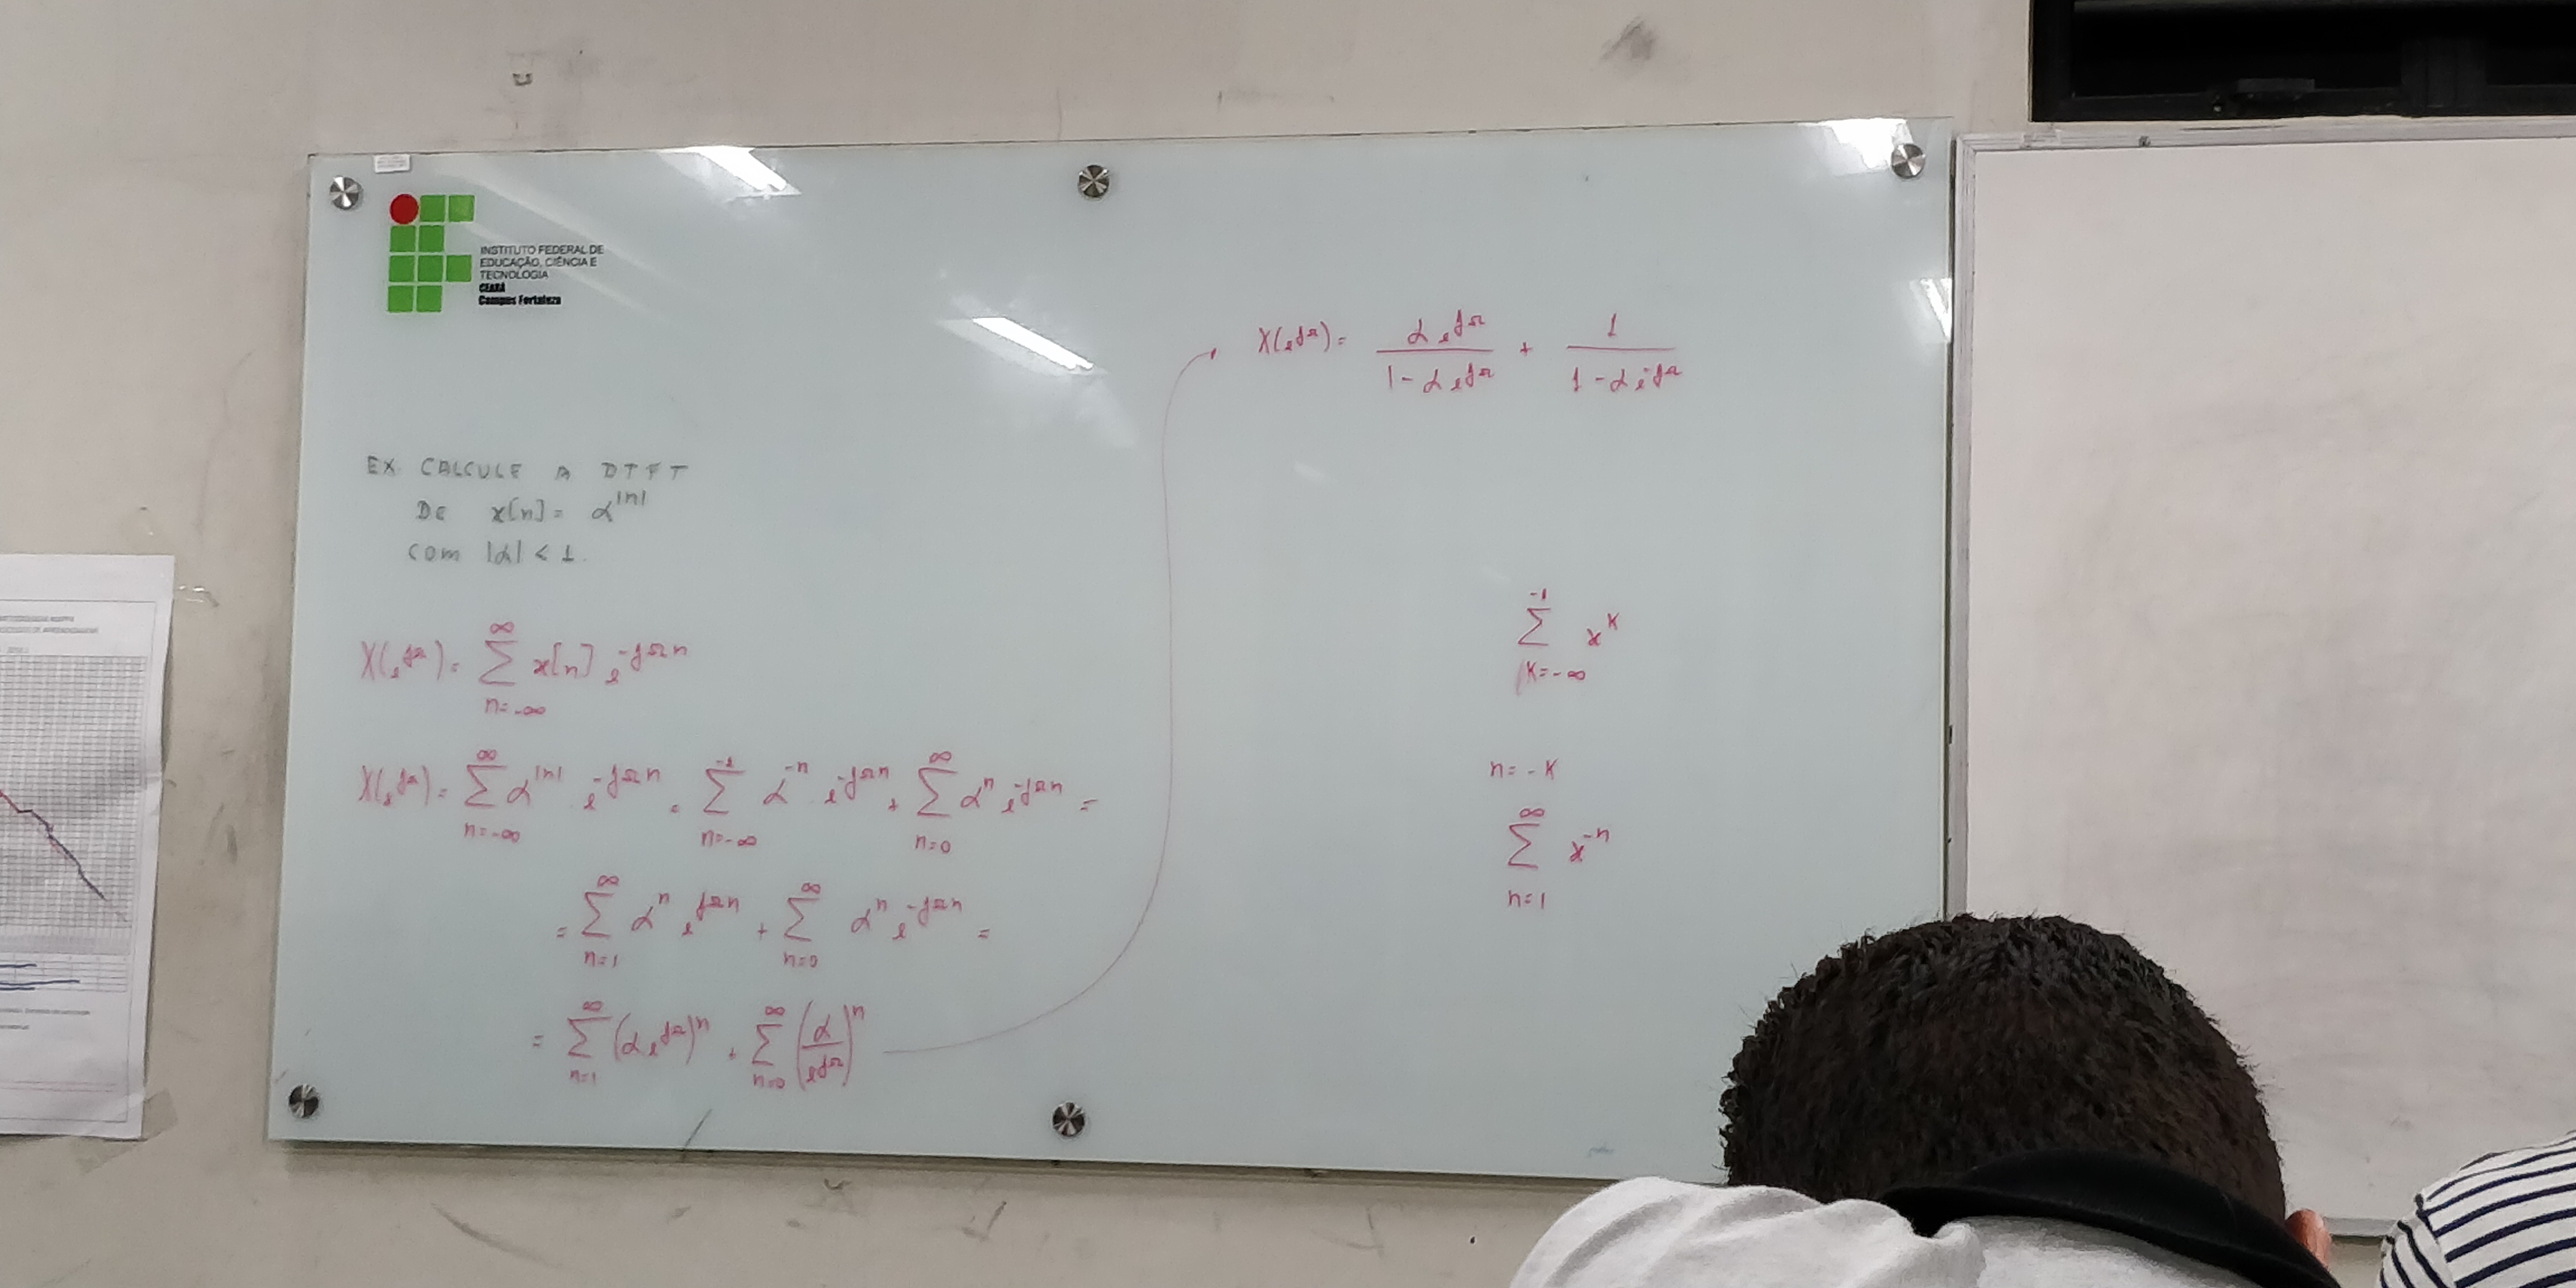 INSTITUTO FEDERAL DE
EDUCAÇÃO, CIÊNCIA E
TECNOLOGIA
CEARÁ
Campus Fortaleza
EX. CALCULE A DTFT
DE x[n] = α^|n|
COM |α| < 1.
X(e^jΩ) = ∑_{n=-∞}^{∞} x[n] e^{-jΩn}
X(e^jΩ) = ∑_{n=-∞}^{∞} α^|n| e^{-jΩn} = ∑_{n=-∞}^{-1} α^{-n} e^{-jΩn} + ∑_{n=0}^{∞} α^n e^{-jΩn} =
= ∑_{n=1}^{∞} α^n e^{jΩn} + ∑_{n=0}^{∞} α^n e^{-jΩn} =
= ∑_{n=1}^{∞} (α e^{jΩ})^n + ∑_{n=0}^{∞} (α / e^{jΩ})^n
X(e^jΩ) = α e^{jΩ} / (1 - α e^{jΩ}) + 1 / (1 - α e^{-jΩ})
∑_{K=-∞}^{-1} x^K
n = -K
∑_{n=1}^{∞} x^{-n}